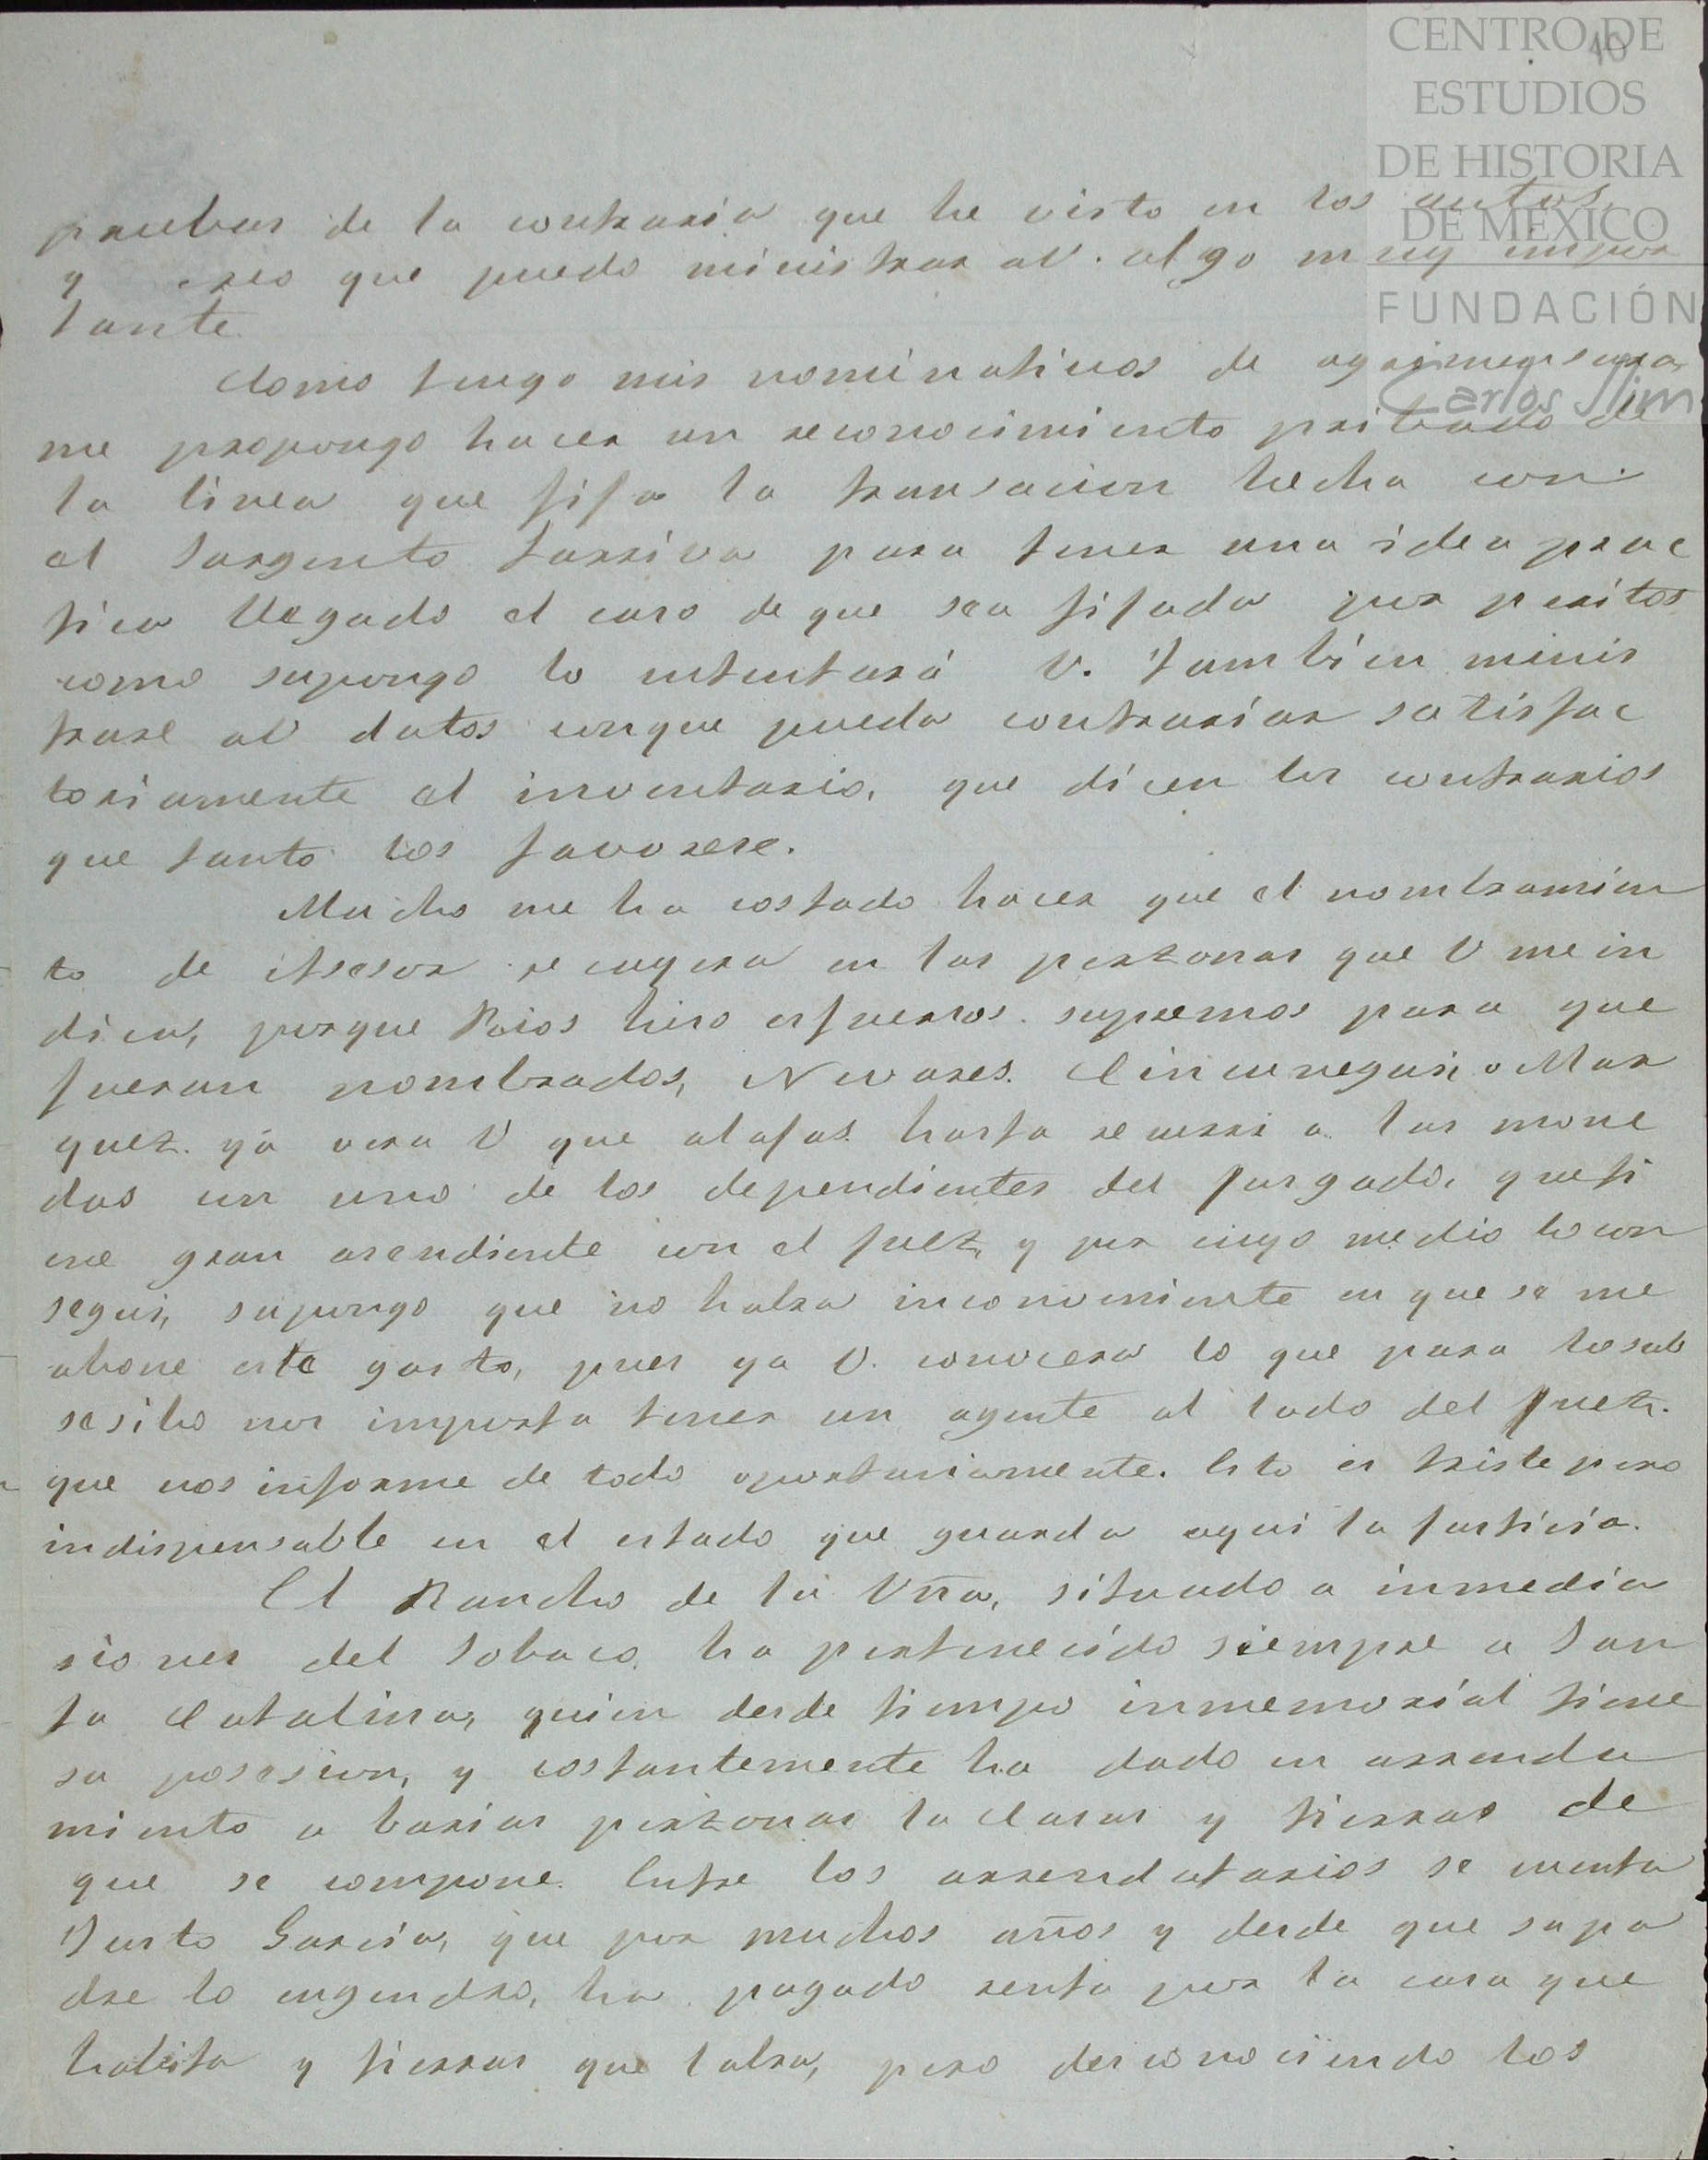 CENTRO DE
ESTUDIOS
DE HISTORIA
DE MÉXICO
FUNDACIÓN
Carlos Slim
10
pruebas de la contraria que he visto en los autos,
y creo que puedo ministrar aV. algo muy impor
tante.
Como tengo mis nominativos de agrimensura,
me propongo hacer un reconocimiento pribado de
la linea que fija la transacion hecha con
el Sargento para tener una idea prac
tica llegado el caso de que sea fijada por peritos
como supongo lo intentará V. Tambien minis
trare aV datos conque pueda contrariar satisfac
toriamente el inventario, que dicen los contrarios
que tanto los favorese.
Mucho me ha costado hacer que el nombramien
to de Asesor recayera en las perzonas que V me in
dica, porque Rios hiso esfuersos supremos para que
fueran nombrados, Nevares. Cincunegui o Mar
quez. ya vera V que atajos hasta recurri a las mone
das en uno de los dependientes del jusgado, que ti
ene gran asendiente con el juez, y por cuyo medio lo con
segui, supongo que no habra inconveniente en que se me
abone este gasto, pues ya V. conocera lo que para lo sub
sesibo nos importa tener un agente al lado del juez.
que nos informe de todo oportunamente. Esto es triste pero
indispensable en el estado que guarda aqui la justicia.
El Rancho de la Uña, situado a inmedia
siones del Tobaco, ha pertenecido siempre a San
ta Catalina, quien desde tiempo inmemorial tiene
su posesion, y costantemente ha dado en arrenda
miento a barias perzonas la Casas y tierras de
que se compone. Entre los arrendatarios se cuenta
Justo Garcia, que por muchos años y desde que supa
dre lo engendro, ha pagado renta por la casa que
habita y tierras que labra, pero desconociendo los